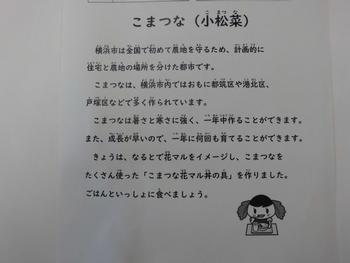 こまつな（小松菜）
横浜市は全国で初めて農地を守るため、計画的に
住宅と農地の場所を分けた都市です。
こまつなは、横浜市内ではおもに都筑区や港北区、
戸塚区などで多く作られています。
こまつなは暑さと寒さに強く、一年中作ることができます。
また、成長が早いので、一年に何回も育てることができます。
きょうは、なるとで花マルをイメージし、こまつなを
たくさん使った「こまつな花マル丼の具」を作りました。
ごはんといっしょに食べましょう。